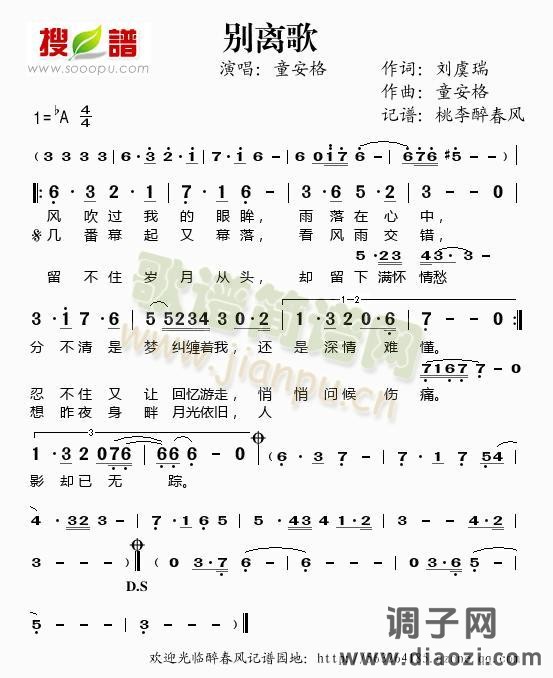 搜谱
www.sooopu.com
别离歌
演唱：童安格
作词：刘虞瑞
作曲：童安格
记谱：桃李醉春风
1=♭A 4/4
(3 3 3 3 | 6·3 2·1 | 7·6 - - | 6 0176 - | 676 #5 - - )
‖: 6·3 2·1 | 7·6 1 - | 3·6 5·2 | 3 - - 0 |
风 吹 过 我 的 眼 眸， 雨 落 在 心 中，
𝄋几 番 幕 起 又 幕 落， 看 风 雨 交 错，
5·23 43·3 -
留 不 住 岁 月 从 头， 却 留 下 满怀 情愁
3·1 7·6 | 5 5234 3 0·2 | 1·3 2 0·6 | 7 - - 0 :‖
1-2
分 不 清 是 梦 纠缠着我，还 是 深 情 难 懂。
7167 7 - 0
忍 不 住 又 让 回忆游走， 悄 悄 问 候 伤 痛。
想 昨 夜 身 畔 月光依旧，人
3
1·3 2 076 | 6·66 6 - 0 | (6·6 3 - | 1·2 7 54 |
影 却 已 无 踪。
4·323 3 - | 7·1 65 | 5·3 43 | 4 1·2 | 3·4 2 - |
3 - - - ) | (0 03·7 | 6 - - - | 6 - - - | 0 03·6 5 |
D.S
5 - - - | 3 - - - ) ‖
调子网
www.diaozi.com
歌谱简谱网
www.jianpu.cn